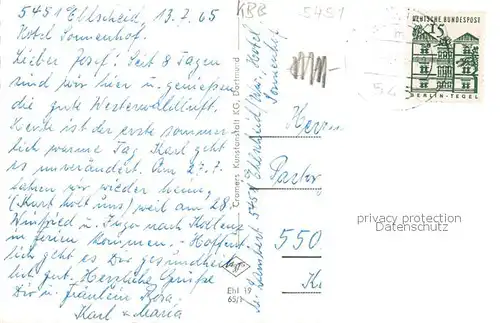 5451 Ehlscheid, 13.7.65
Hotel Sonnenhof.
Lieber Josef! Seit 8 Tagen
sind wir hier u. genießen
die gute Westerwaldluft.
Heute ist der erste sommer-
lich warme Tag. Karl geht
es unverändert. Am 27.7.
fahren wir wieder heim,
(Kurt holt uns) weil am 28.
Winfried u. Ingo nach Koblenz
in Ferien kommen. - Hoffent-
lich geht es Dir gesundheit-
lich gut. Herzliche Grüße
Dir u. Fräulein Rosa
Karl & Maria
Cramers Kunstanstalt KG, Dortmund
Ehl 19
65/1
5451 Ehlscheid/
Hotel
Sonnenhof
KBB
5451
DEUTSCHE BUNDESPOST
15
BERLIN-TEGEL
54
Herrn
Pastor
550
privacy protection
Datenschutz